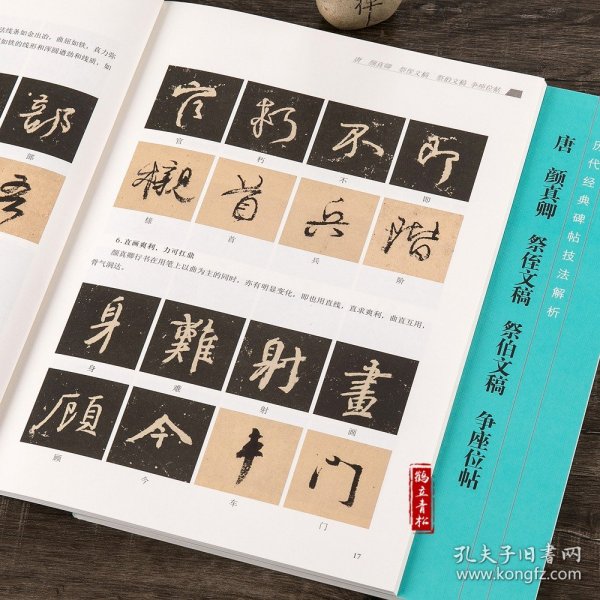 法线条如金出冶，曲屈如铁，直力弥
如铁的线形和浑圆遒劲和线质，如
唐 颜真卿 祭侄文稿 祭伯文稿 争座位帖
官 朽 不 即
官 朽 不 即
櫬 首 兵 階
榇 首 兵 阶
6.直画爽利，力可扛鼎
颜真卿行书在用笔上以曲为主的同时，亦有明显变化，即也用直线，直求爽利，曲直互用，
骨气洞达。
身 難 射 畫
身 难 射 画
顧 今 车 门
顾 今 车 门
17
鹤立青松
历代经典碑帖技法解析
唐 颜真卿 祭侄文稿 祭伯文稿 争座位帖
孔夫子旧书网
www.kongfz.com